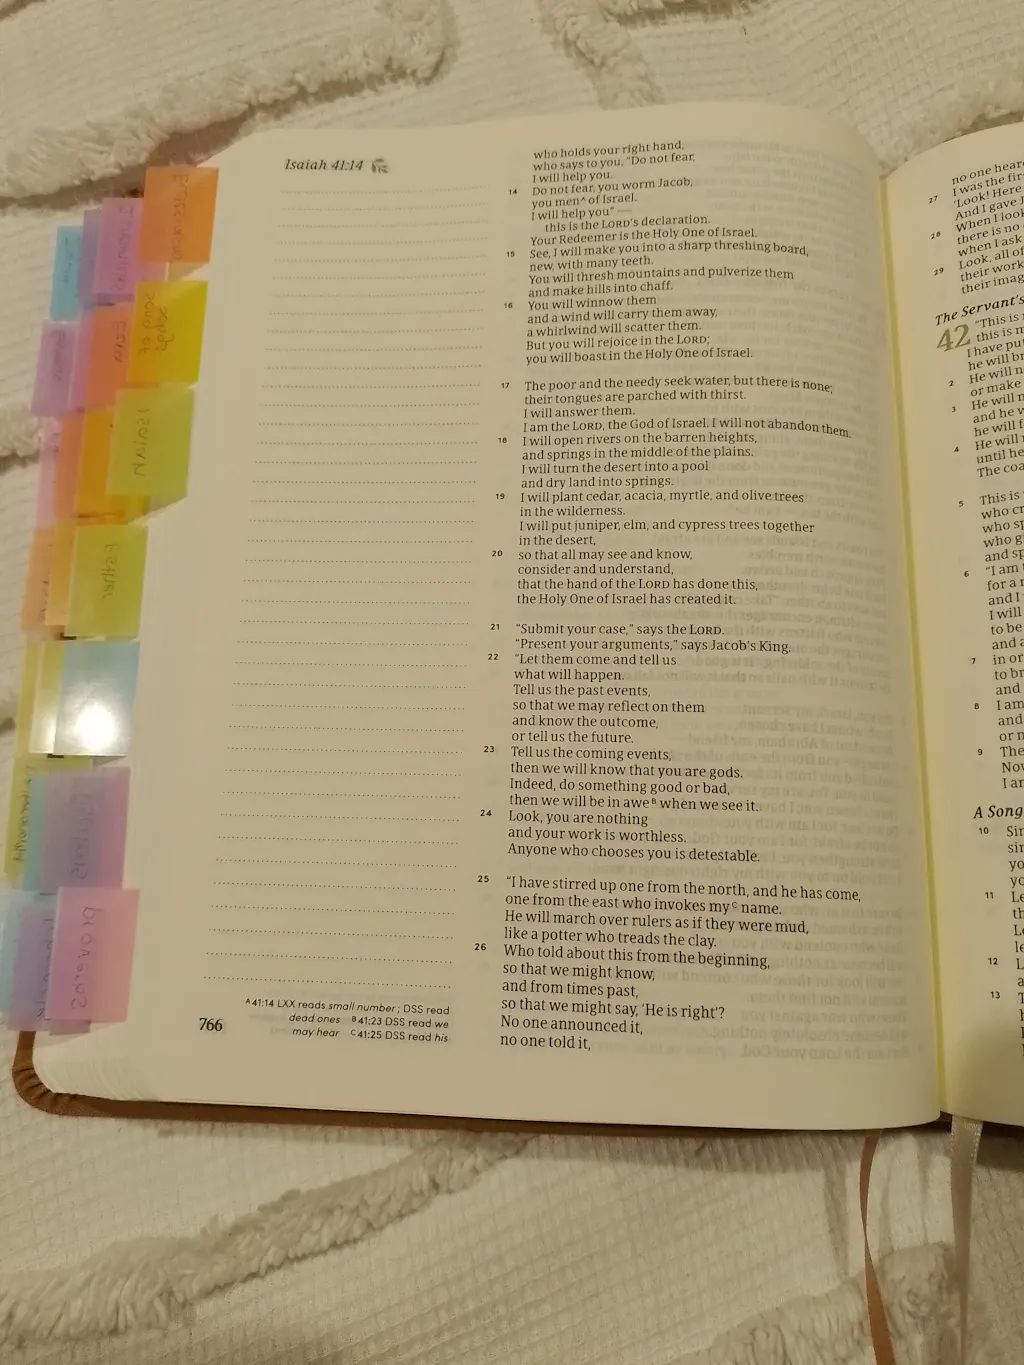 Isaiah 41:14
who holds your right hand,
who says to you, "Do not fear,
I will help you.
14 Do not fear, you worm Jacob,
you menᴬ of Israel.
I will help you" —
this is the LORD's declaration.
Your Redeemer is the Holy One of Israel.
15 See, I will make you into a sharp threshing board,
new, with many teeth.
You will thresh mountains and pulverize them
and make hills into chaff.
16 You will winnow them
and a wind will carry them away,
a whirlwind will scatter them.
But you will rejoice in the LORD;
you will boast in the Holy One of Israel.
17 The poor and the needy seek water, but there is none;
their tongues are parched with thirst.
I will answer them.
I am the LORD, the God of Israel. I will not abandon them.
18 I will open rivers on the barren heights,
and springs in the middle of the plains.
I will turn the desert into a pool
and dry land into springs.
19 I will plant cedar, acacia, myrtle, and olive trees
in the wilderness.
I will put juniper, elm, and cypress trees together
in the desert,
20 so that all may see and know,
consider and understand,
that the hand of the LORD has done this,
the Holy One of Israel has created it.
21 "Submit your case," says the LORD.
"Present your arguments," says Jacob's King.
22 "Let them come and tell us
what will happen.
Tell us the past events,
so that we may reflect on them
and know the outcome,
or tell us the future.
23 Tell us the coming events,
then we will know that you are gods.
Indeed, do something good or bad,
then we will be in aweᴮ when we see it.
24 Look, you are nothing
and your work is worthless.
Anyone who chooses you is detestable.
25 "I have stirred up one from the north, and he has come,
one from the east who invokes myᶜ name.
He will march over rulers as if they were mud,
like a potter who treads the clay.
26 Who told about this from the beginning,
so that we might know,
and from times past,
so that we might say, 'He is right'?
No one announced it,
no one told it,
ᴬ41:14 LXX reads small number; DSS read
dead ones ᴮ41:23 DSS read we
may hear ᶜ41:25 DSS read his
766
no one hear
27 I was the fir
'Look! Here
And I gave J
28 When I look
there is no
when I ask
29 Look, all of
their work
their imag
The Servant's
42 "This is
this is m
I have put
he will br
2 He will n
or make
3 He will n
and he w
he will f
4 He will
until he
The coa
5 This is
who cr
who sp
who g
and sp
6 "I am
for a
and I
I will
to be
and a
7 in or
to br
and
8 I am
and
or n
9 The
Nov
I ar
A Song
10 Sin
sin
yo
yo
11 Le
th
Le
le
12 L
a
13 T
Song of
Songs
Ezra
Isaiah
Esther